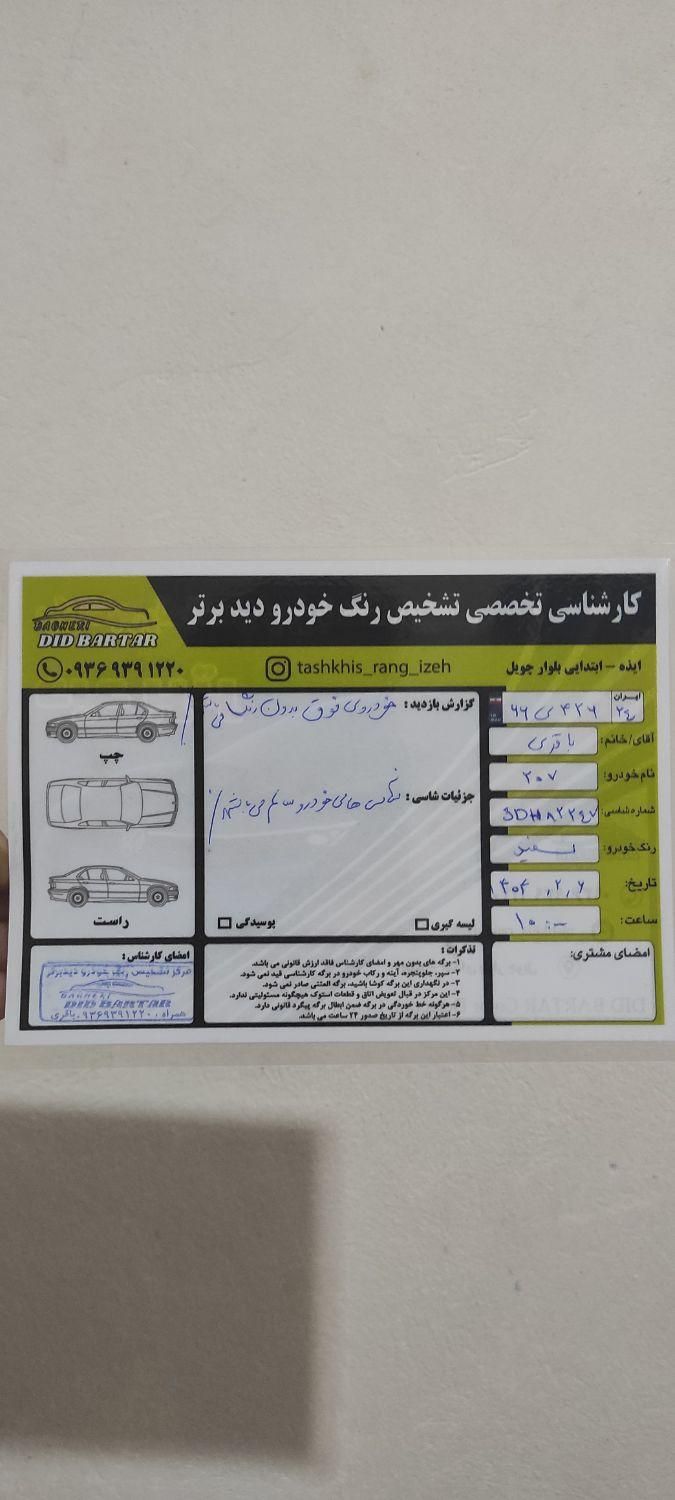 کارشناسی تخصصی تشخیص رنگ خودرو دید برتر
BAGHERI
DID BARTAR
ایذه – ابتدایی بلوار چویل
tashkhis_rang_izeh
۰۹۳۶ ۹۳۹ ۱۲۲۰
ایران
۲٤
۶۶ ی ۴۲۶
آقای/خانم: باقری
نام خودرو: ۲۰۷
شماره شاسی:
رنگ خودرو: سفید
تاریخ: ۱۴۰۴,۲,۶
ساعت: ۱۰:-
امضای مشتری:
گزارش بازدید: خودروی فوق بدون رنگ می باشد
جزئیات شاسی: شاسی های خودرو سالم می باشد
لیسه گیری
پوسیدگی
چپ
راست
تذکرات:
۱- برگه های بدون مهر و امضای کارشناس فاقد ارزش قانونی می باشد.
۲- سپر، جلوپنجره، آینه و رکاب خودرو در برگه کارشناسی قید نمی شود.
۳- در نگهداری این برگه کوشا باشید، برگه المثنی صادر نمی شود.
۴- این مرکز در قبال تعویض اتاق و قطعات استوک هیچگونه مسئولیتی ندارد.
۵- هرگونه خط خوردگی در برگه ضمن ابطال برگه پیگرد قانونی دارد.
۶- اعتبار این برگه از تاریخ صدور ۲۴ ساعت می باشد.
امضای کارشناس:
مرکز تشخیص رنگ خودرو دید برتر
BAGHERI
DID BARTAR
همراه: ۰۹۳۶۹۳۹۱۲۲۰ باقری